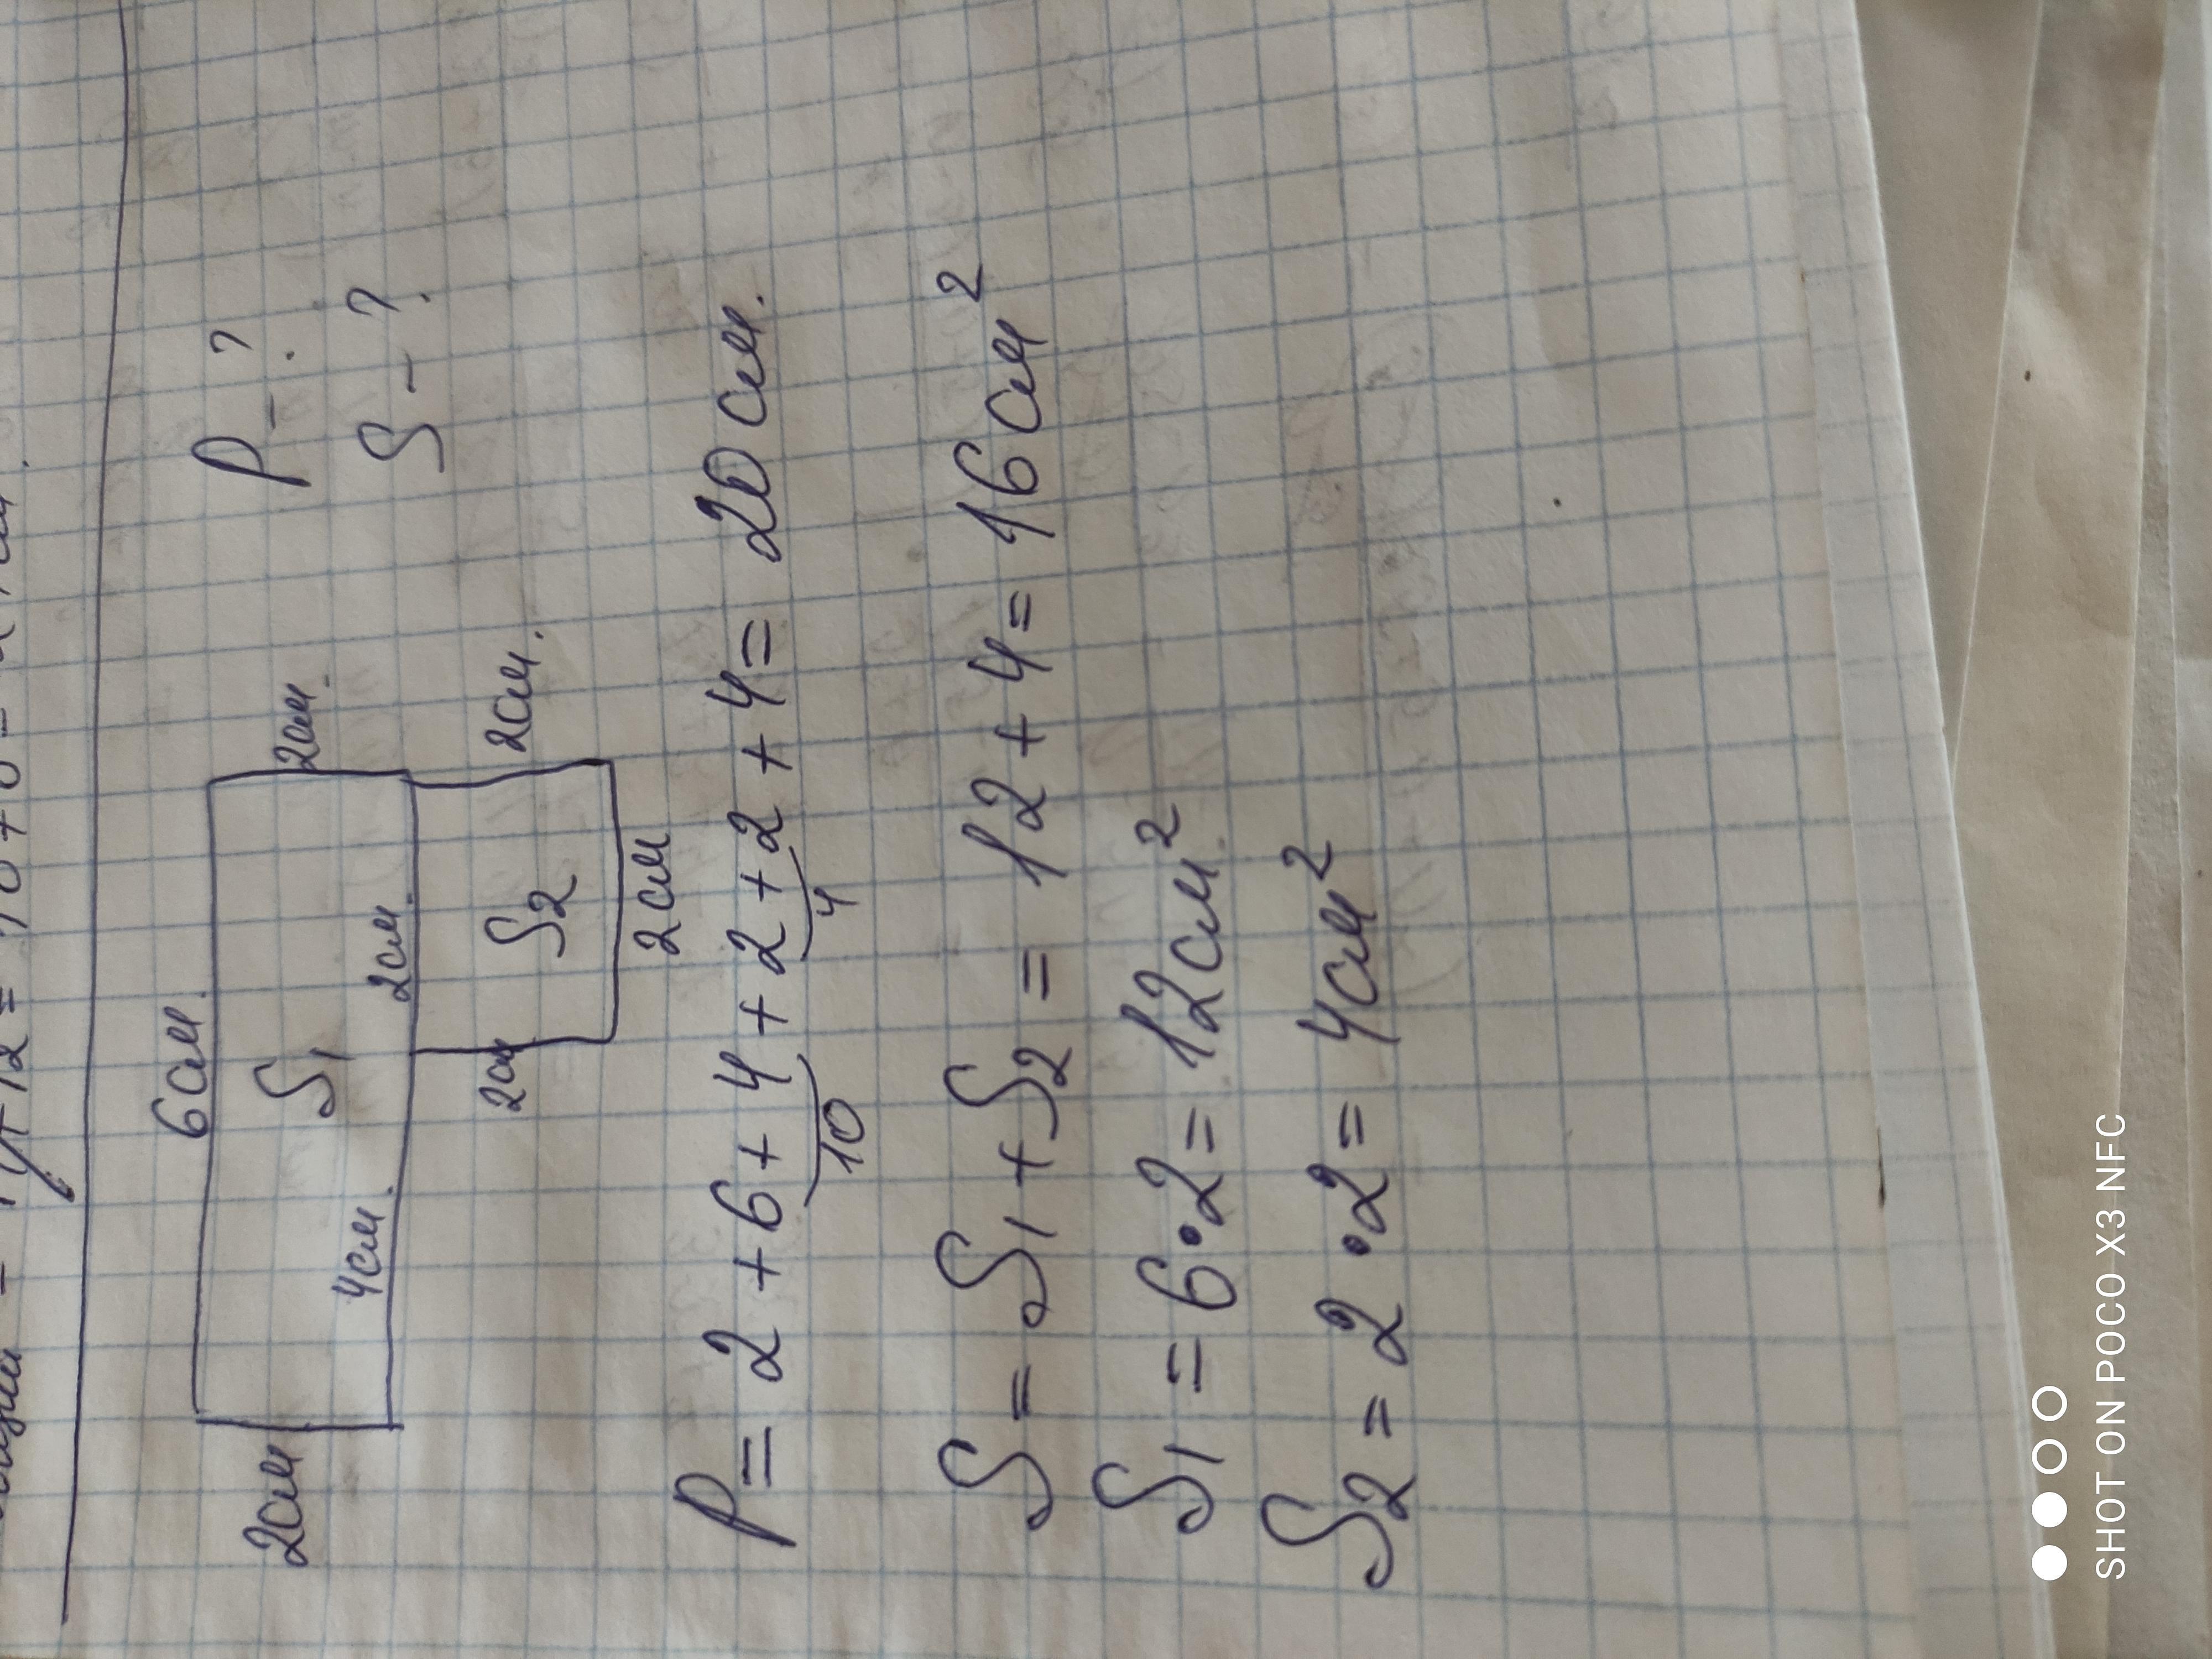 у + 12 =
6 см.
P - ?
2 см
S1
2 см.
S - ?
4 см.
2 см.
2 см
S2
2 см.
2 см
P = 2 + 6 + 4 + 2 + 2 + 4 = 20 см.
10
4
S = S1 + S2 = 12 + 4 = 16 см²
S1 = 6 · 2 = 12 см²
S2 = 2 · 2 = 4 см²
SHOT ON POCO X3 NFC